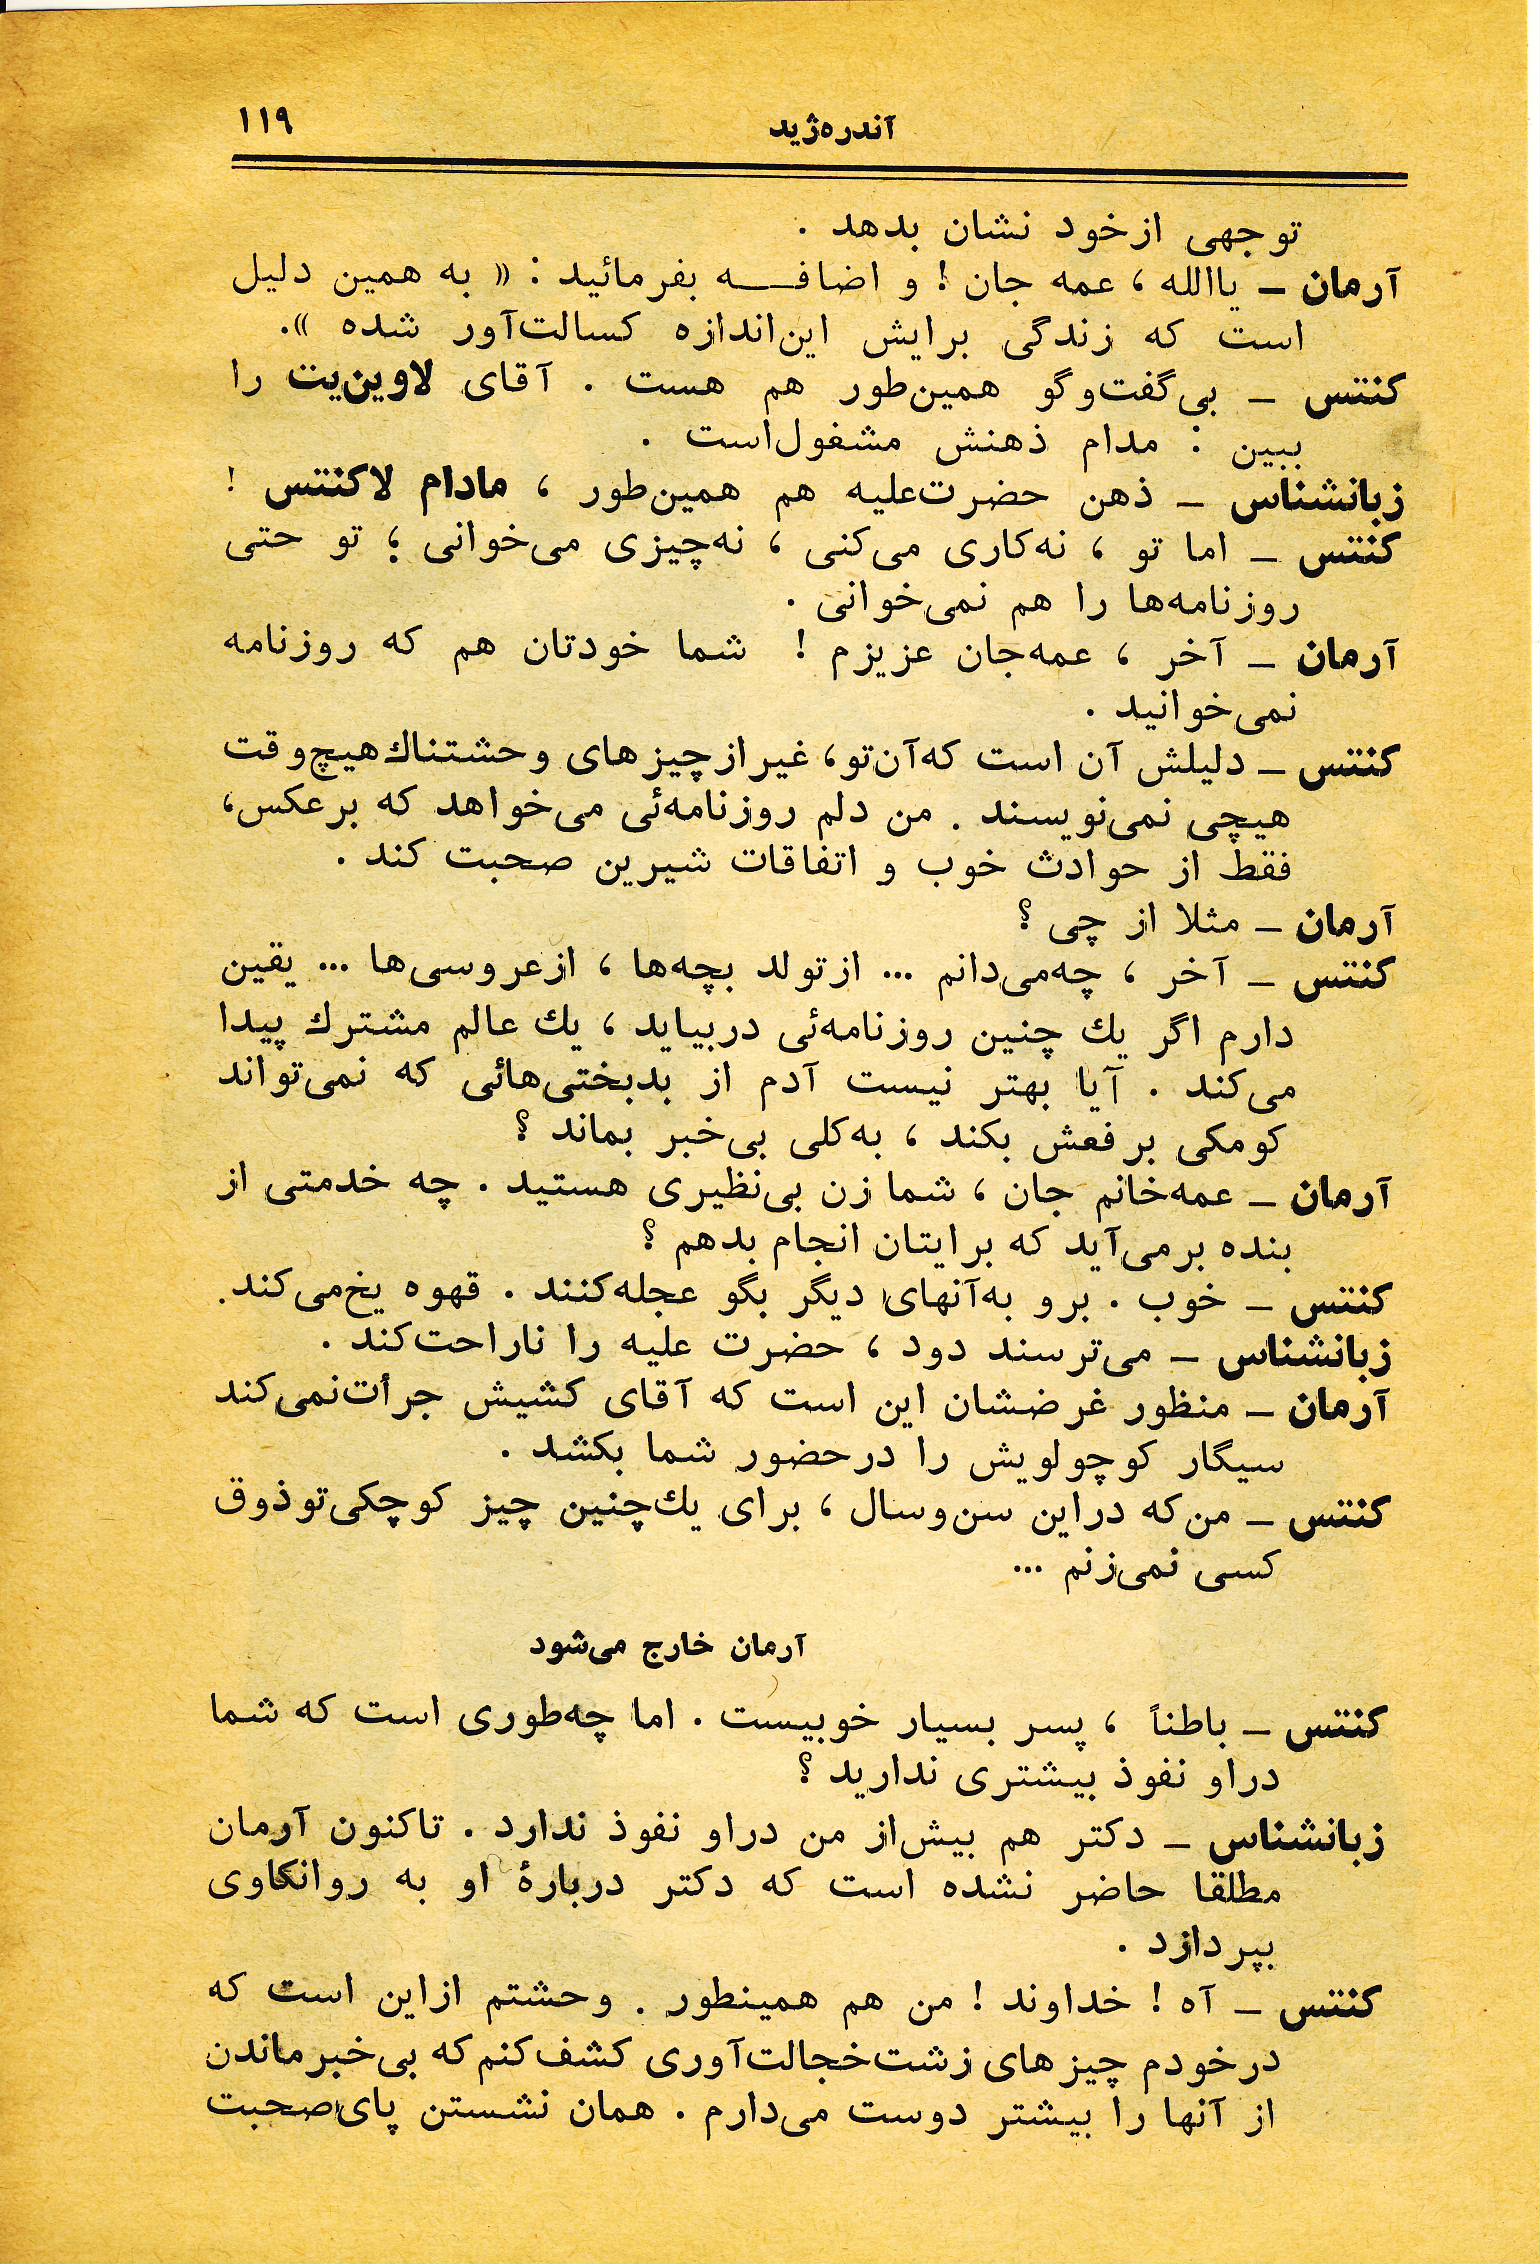 آندره‌ژید ۱۱۹
توجهی ازخود نشان بدهد .
آرمان – یاالله ، عمه جان ! و اضافـــه بفرمائید : « به همین دلیل
است که زندگی برایش این‌اندازه کسالت‌آور شده ».
کنتس – بی‌گفت‌وگو همین‌طور هم هست . آقای لاوین‌یت را
ببین : مدام ذهنش مشغول‌است .
زبانشناس – ذهن حضرت‌علیه هم همین‌طور ، مادام لاکنتس !
کنتس – اما تو ، نه‌کاری می‌کنی ، نه‌چیزی می‌خوانی ؛ تو حتی
روزنامه‌ها را هم نمی‌خوانی .
آرمان – آخر ، عمه‌جان عزیزم ! شما خودتان هم که روزنامه
نمی‌خوانید .
کنتس – دلیلش آن است که‌آن‌تو، غیرازچیزهای وحشتناك‌هیچ‌وقت
هیچی نمی‌نویسند . من دلم روزنامه‌ئی می‌خواهد که برعکس،
فقط از حوادث خوب و اتفاقات شیرین صحبت کند .
آرمان – مثلا از چی ؟
کنتس – آخر ، چه‌می‌دانم ... ازتولد بچه‌ها ، ازعروسی‌ها ... یقین
دارم اگر یك چنین روزنامه‌ئی دربیاید ، یك عالم مشترك پیدا
می‌کند . آیا بهتر نیست آدم از بدبختی‌هائی که نمی‌تواند
کومکی برفعش بکند ، به‌کلی بی‌خبر بماند ؟
آرمان – عمه‌خانم جان ، شما زن بی‌نظیری هستید . چه خدمتی از
بنده برمی‌آید که برایتان انجام بدهم ؟
کنتس – خوب . برو به‌آنهای دیگر بگو عجله‌کنند . قهوه یخ‌می‌کند.
زبانشناس – می‌ترسند دود ، حضرت علیه را ناراحت‌کند .
آرمان – منظور غرضشان این است که آقای کشیش جرأت‌نمی‌کند
سیگار کوچولویش را درحضور شما بکشد .
کنتس – من‌که دراین سن‌وسال ، برای یك‌چنین چیز کوچکی‌توذوق
کسی نمی‌زنم ...
آرمان خارج می‌شود
کنتس – باطناً ، پسر بسیار خوبیست . اما چه‌طوری است که شما
دراو نفوذ بیشتری ندارید ؟
زبانشناس – دکتر هم بیش‌از من دراو نفوذ ندارد . تاکنون آرمان
مطلقا حاضر نشده است که دکتر دربارهٔ او به روانکاوی
بپردازد .
کنتس – آه ! خداوند ! من هم همینطور . وحشتم ازاین است که
درخودم چیزهای زشت‌خجالت‌آوری کشف‌کنم‌که بی‌خبرماندن
از آنها را بیشتر دوست می‌دارم . همان نشستن پای‌صحبت